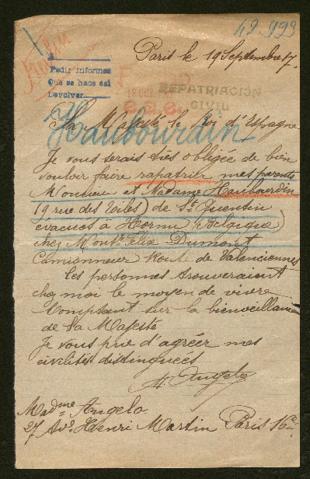 49.999
Paris le 19 Septembre 17.
Pedir informes
que se hace así
devolver.
REPATRIACION
CIVIL
Haubourdin
Sa Majesté le Roi d'Espagne
Je vous serais très obligée de bien
vouloir faire rapatrier mes parents
Monsieur et Madame
19 rue des Toiles) de St Quentin
évacués à Hornu (Belgique)
chez Monsr Félix Dumont
Camionneur Route de Valenciennes
Ces personnes trouveraient
chez moi le moyen de vivre
Comptant sur la bienveillance
de Sa Majesté
Je vous prie d'agréer mes
civilités distinguées
Angelo
Madme Angelo
27 Ave Henri Martin Paris 16e